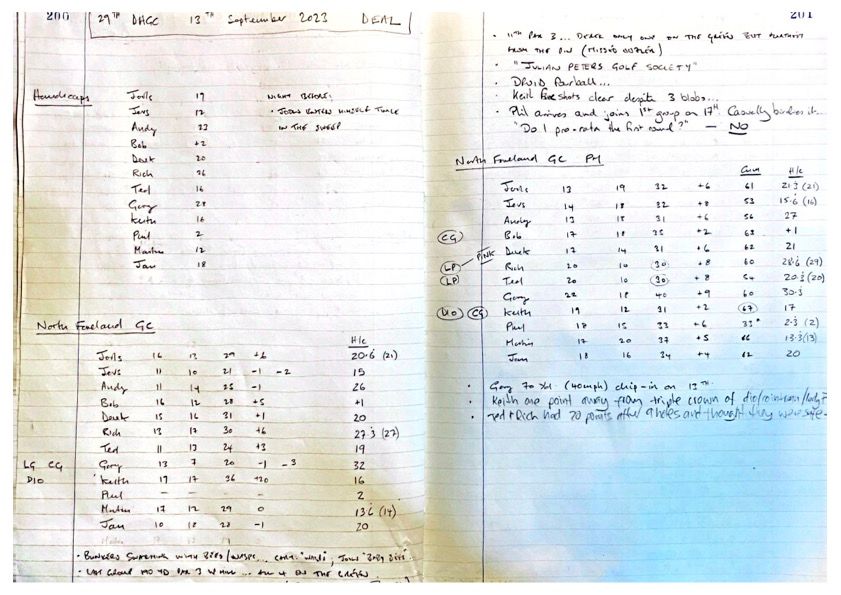 200
29TH DAGC 13TH September 2023 DEAL
Handicaps
Jools 19
Jevs 12
Andy 23
Bob +2
Derek 20
Rich 26
Ted 16
Gary 28
Keith 16
Paul 2
Martin 12
Jan 18
NIGHT BEFORE:
· JOOLS ENTERS HIMSELF TWICE
IN THE SWEEP
North Foreland GC
H/c
Jools 16 13 29 +6 20.6 (21)
Jevs 11 10 21 -1 -2 15
Andy 11 14 25 -1 26
Bob 16 12 28 +5 +1
Derek 15 16 31 +1 20
Rich 13 17 30 +6 27.3 (27)
Ted 11 13 24 +3 19
LG CG Gary 13 7 20 -1 -3 32
D10 Keith 19 17 36 +20 16
Paul - - - - 2
Martin 17 12 29 0 13.6 (14)
Jan 10 18 28 -1 20
· BUNKERS SWARMING WITH BEES/WASPS...
· LAST GROUP 140 YD PAR 3 ... ALL 4 ON THE GREEN
201
· 11TH PAR 3... DEREK ONLY ONE ON THE GREEN BUT FURTHEST
FROM THE PIN (MISSES)
· "JULIAN PETERS GOLF SOCIETY"
· DRUID Fourball...
· Keith five shots clear despite 3 blobs...
· Phil arrives and joins 1st group on 17th. Casually birdies it...
"Do I pro-rata the first round?" — NO
North Foreland GC PM
Cum H/c
Jools 13 19 32 +6 61 21.3 (21)
Jevs 14 18 32 +8 53 15.6 (16)
Andy 13 18 31 +6 56 27
CG Bob 17 18 35 +2 63 +1
Derek 17 14 31 +6 62 21
LP PINK Rich 20 10 30 +8 60 28.6 (29)
LP Ted 20 10 30 +8 54 20.3 (20)
Gary 22 18 40 +9 60 30.3
D10 CG Keith 19 12 31 +2 67 17
Paul 18 15 33 +6 33* 2.3 (2)
Martin 17 20 37 +5 66 13.3 (13)
Jan 18 16 34 +4 62 20
· Gary 70 yd. (40mph) chip-in on 13th.
· Keith one point away from triple crown of
· Ted & Rich had 20 points after 9 holes and thought they were safe-